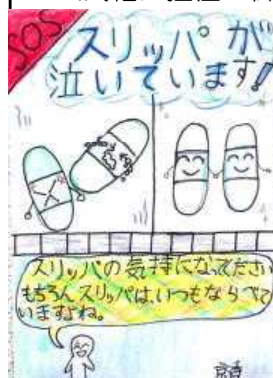 SOS
スリッパが
泣いています!
スリッパの気持になってださい
もちろんスリッパは、いつもならべて
いますよね。